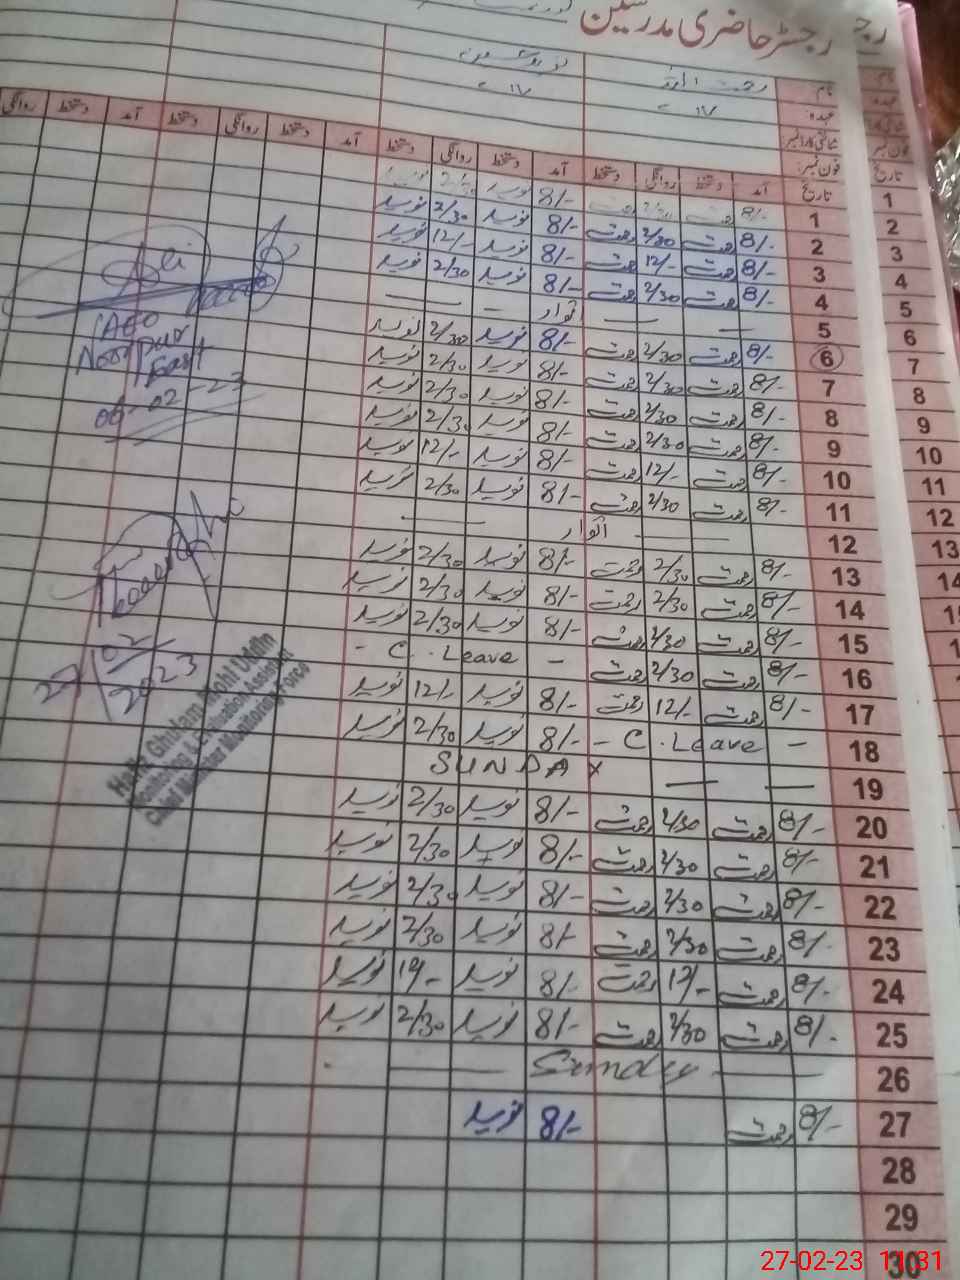 رجسٹر حاضری مدرسین
نام:
عہدہ:
شناختی کارڈ نمبر
فون نمبر:
تاریخ آمد دستخط روانگی دستخط آمد دستخط روانگی دستخط آمد دستخط روانگی دستخط آمد دستخط روانگی
1 8/- رحمت 2/30 رحمت 8/- نوید 2/30 نوید
2 8/- رحمت 2/30 رحمت 8/- نوید 2/30 نوید
3 8/- رحمت 12/- رحمت 8/- نوید 12/- نوید
4 8/- رحمت 2/30 رحمت 8/- نوید 2/30 نوید
5 — — اتوار — — —
6 8/- رحمت 2/30 رحمت 8/- نوید 2/30 نوید
7 8/- رحمت 2/30 رحمت 8/- نوید 2/30 نوید
8 8/- رحمت 2/30 رحمت 8/- نوید 2/30 نوید
9 8/- رحمت 2/30 رحمت 8/- نوید 2/30 نوید
10 8/- رحمت 12/- رحمت 8/- نوید 12/- نوید
11 8/- رحمت 2/30 رحمت 8/- نوید 2/30 نوید
12 — — اتوار — —
13 8/- رحمت 2/30 رحمت 8/- نوید 2/30 نوید
14 8/- رحمت 2/30 رحمت 8/- نوید 2/30 نوید
15 8/- رحمت 2/30 رحمت 8/- نوید 2/30 نوید
16 8/- رحمت 2/30 رحمت - C. Leave -
17 8/- رحمت 12/- رحمت 8/- نوید 12/- نوید
18 - C. Leave - 8/- نوید 2/30 نوید
19 — — SUNDAY
20 8/- رحمت 2/30 رحمت 8/- نوید 2/30 نوید
21 8/- رحمت 2/30 رحمت 8/- نوید 2/30 نوید
22 8/- رحمت 2/30 رحمت 8/- نوید 2/30 نوید
23 8/- رحمت 2/30 رحمت 8/- نوید 2/30 نوید
24 8/- رحمت 12/- رحمت 8/- نوید 12/- نوید
25 8/- رحمت 2/30 رحمت 8/- نوید 2/30 نوید
26 — Sunday —
27 8/- رحمت 8/- نوید
28
29
30
Ali
AEO
Noorpur
East
06-02-23
27/02/2023
Hafiz Ghulam Mohi Uddin
Monitoring & Evaluation Assistant
Chief Minister Monitoring Force
رجسٹر
نام:
عہدہ:
شناختی کارڈ
فون نمبر
تاریخ
1
2
3
4
5
6
7
8
9
10
11
12
13
14
27-02-23 11:31